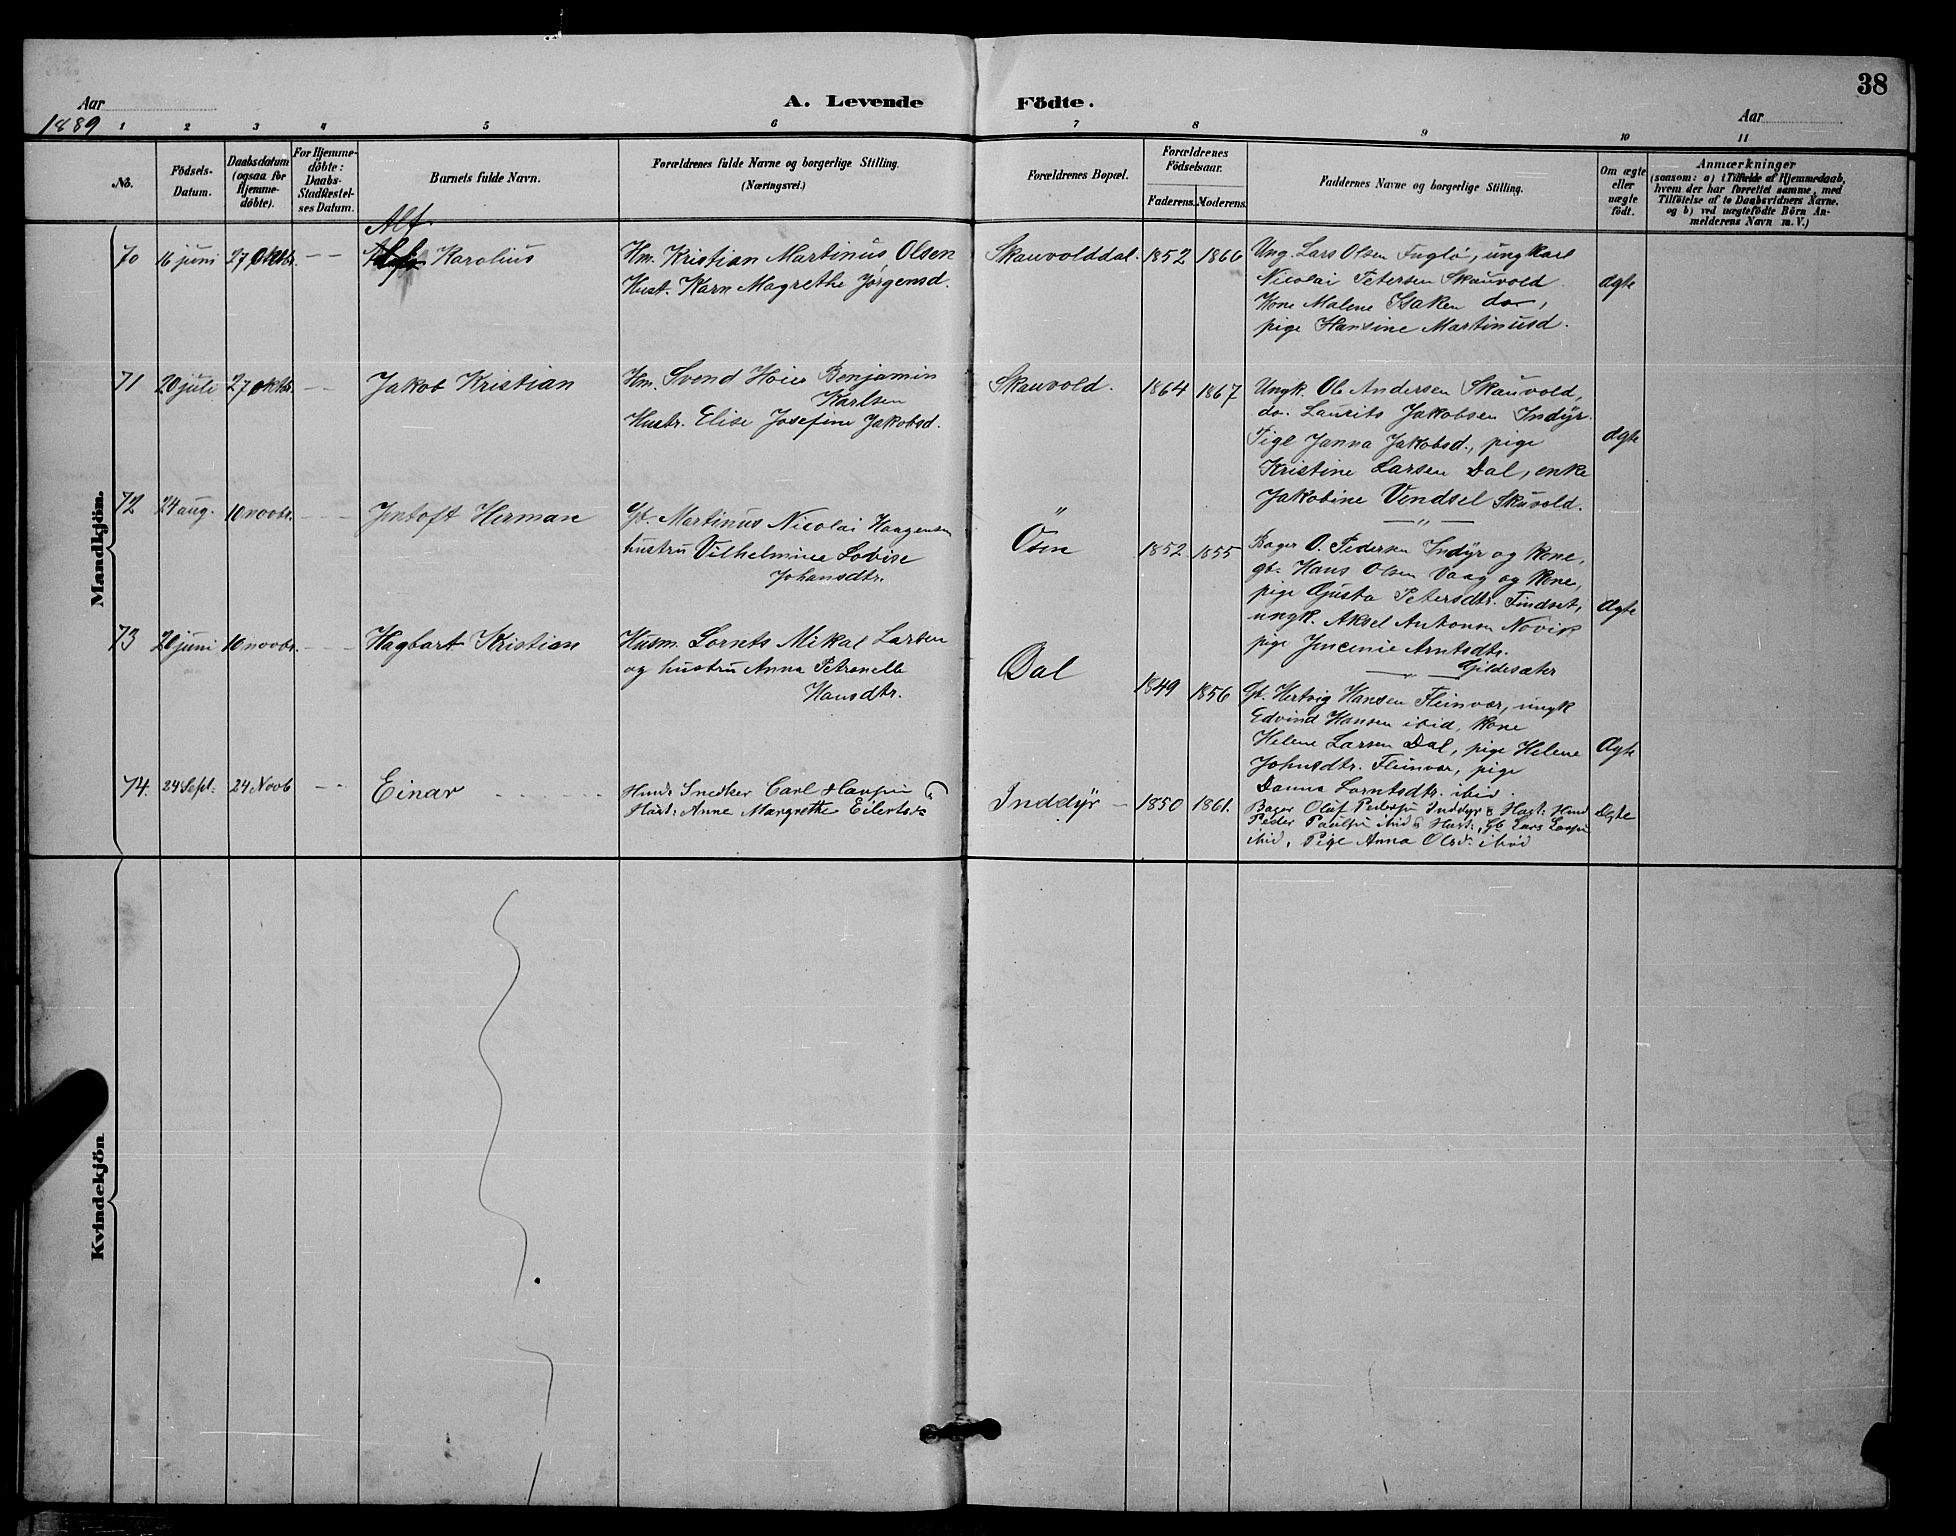 38
Aar
1889
A. Levende Födte.
Aar
1 2 3 4 5 6 7 8 9 10 11
No.
Födsels-
Datum.
Daabsdatum
(ogsaa for
Hjemme-
döbte).
For Hjemme-
döbte:
Daabs-
Stadfæstel-
ses Datum.
Barnets fulde Navn.
Forældrenes fulde Navne og borgerlige Stilling.
(Næringsvei.)
Forældrenes Bopæl.
Forældrenes
Födselsaar.
Faderens. Moderens.
Faddernes Navne og borgerlige Stilling.
Om ægte
eller
uægte
födt.
Anmærkninger
(saasom: a) i Tilfælde af Hjemmedaab,
hvem der har forrettet samme, med
Tilföielse af to Daabsvidners Navne.
og b) ved uægtefödte Börn An-
melderens Navn m. V.)
Mandkjön.
Alf
70 16 juni 27 Oktbr. — — Karolius
Hm. Kristian Martinus Olsen
Hust. Karn Magrethe Jørgensd.
Skauvolddal. 1852 1866
Ung. Lars Olsen Fuglø, ungkarl
Nicolai Petersen Skauvold
Kone Malene Isaksen do,
pige Hansine Martinusd.
ægte
71 20 juli 27 oktbr. — Jakob Kristian
Hm. Svend Høier Benjamin
Karlsen
Hustr. Elise Josefine Jakobsd.
Skauvold. 1864 1867
Ungk. Ole Andersen Skauvold,
do. Laurits Jakobsen Indyr.
Pige Janna Jakobsd., pige
Kristine Larsen Dal, enke
Jakobine Vendsel Skauvold.
ægte
72 24 aug. 10 novbr. — Jntoft Herman
Gb. Martinus Nicolai Haagensen
hustru Vilhelmine Lovise
Johansdtr.
Osen 1852 1855
Bager O. Pedersen Indÿr og Kone,
gb. Hans Olsen Vaag og Kone,
pige Gusta Petersdtr. Findset,
ungk. Aksel Antonsen Novik
pige Jncenie Arntsdtr.
Gildesæter
Ægte
73 20 juni 10 novbr. — Hagbart Kristian
Husm. Lornts Mikal Larsen
og hustru Anna Petrenella
Hansdtr.
Dal 1849 1856
Gb. Hertvig Hansen Fleinvær, ungk
Edvind Hansen ibid, Kone
Helene Larsen Dal, pige Helene
Johnsdtr. Fleinvær, pige
Danna Lorntsdtr. ibid.
Ægte
74. 24 Sept: 24 Novb — Einar
Snedker Carl Hansen
Hust: Anne Margrethe Eilertsd:
Inddÿr — 1850 1861.
Bager Oluf Pedersen Inddyr & Hust:
Peder Paulsen ibid & Hust:, Gb Lars
ibid, Pige Anna Olsd: ibid
Ægte
Kvindekjön